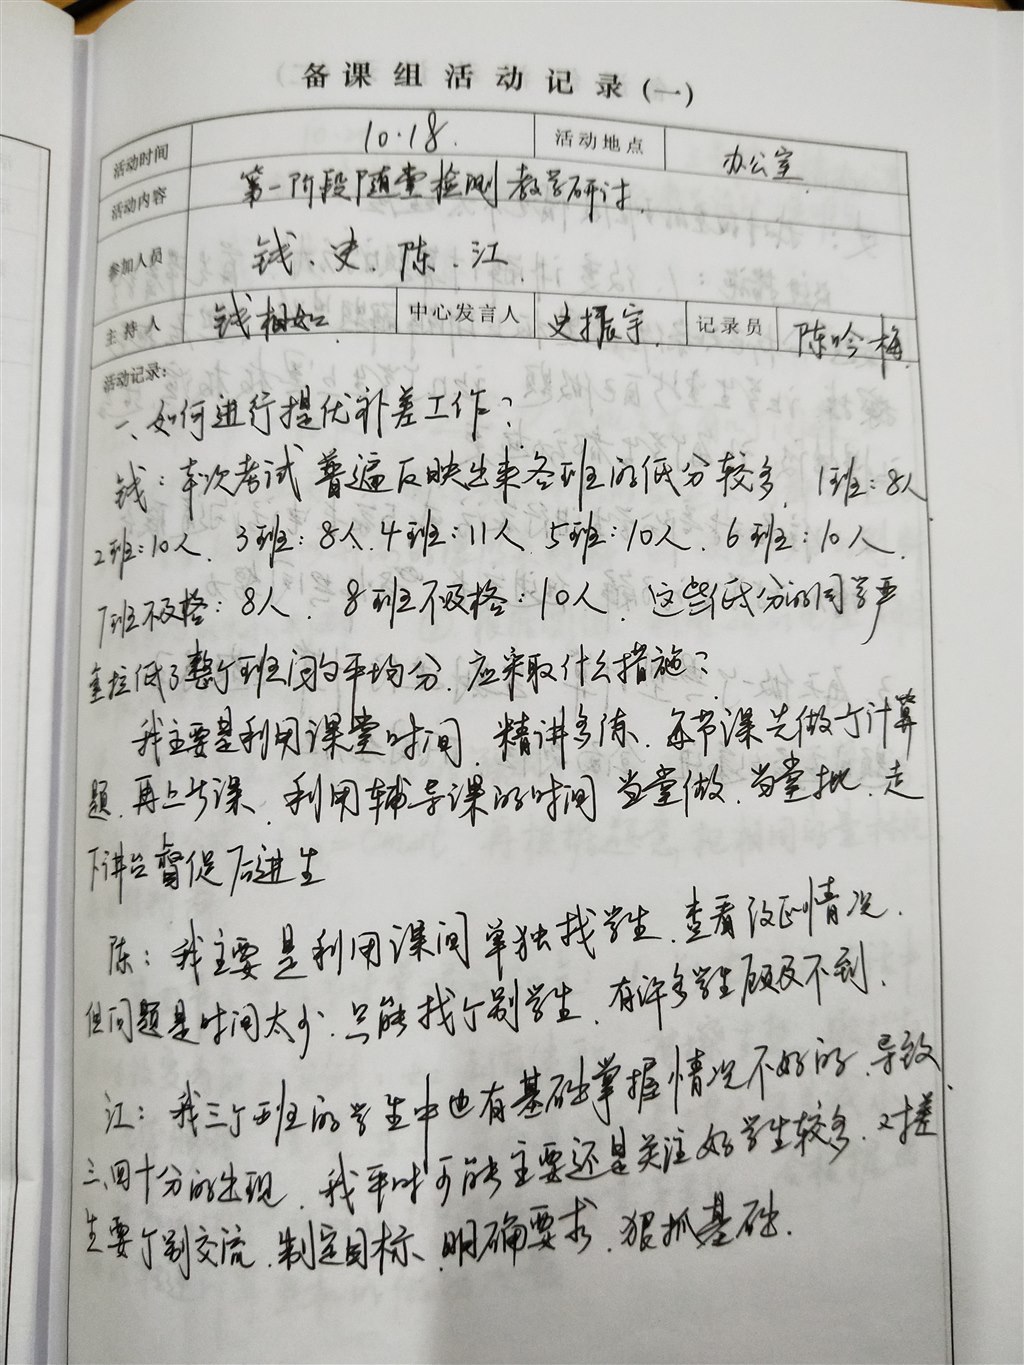 备课组活动记录(一)
活动时间 10.18. 活动地点 办公室
活动内容 第一阶段随堂检测教学研讨.
参加人员 钱、史、陈、江
主持人 钱相如 中心发言人 史振宇 记录员 陈吟梅
活动记录:
一、如何进行提优补差工作?
钱:本次考试普遍反映出来各班的低分较多, 1班:8人
2班:10人、3班:8人、4班:11人、5班:10人、6班:10人、
7班不及格:8人、8班不及格:10人、这些低分的同学严
重拉低了整个班间的平均分、应采取什么措施?
我主要是利用课堂时间、精讲多练、每节课先做个计算
题、再上为课、利用辅导课的时间当堂做、当堂批、走
下讲台督促后进生
陈:我主要是利用课间单独找学生、查看改正情况、
但问题是时间太少、只能找个别学生、有许多学生顾及不到、
江:我三个班的学生中也有基础掌握情况不好的、导致
三、四十分的出现、我平时可能主要还是关注好学生较多、对差
生要个别交流、制定目标、明确要求、狠抓基础.